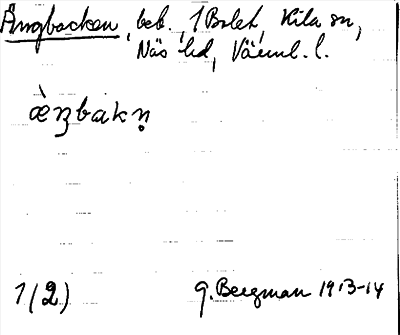 Ängbacken, beb., 1 Bolet, Kila sn,
Näs hd, Värml. l.
æ̀ŋbakn̥
1(2) G. Bergman 1913-14